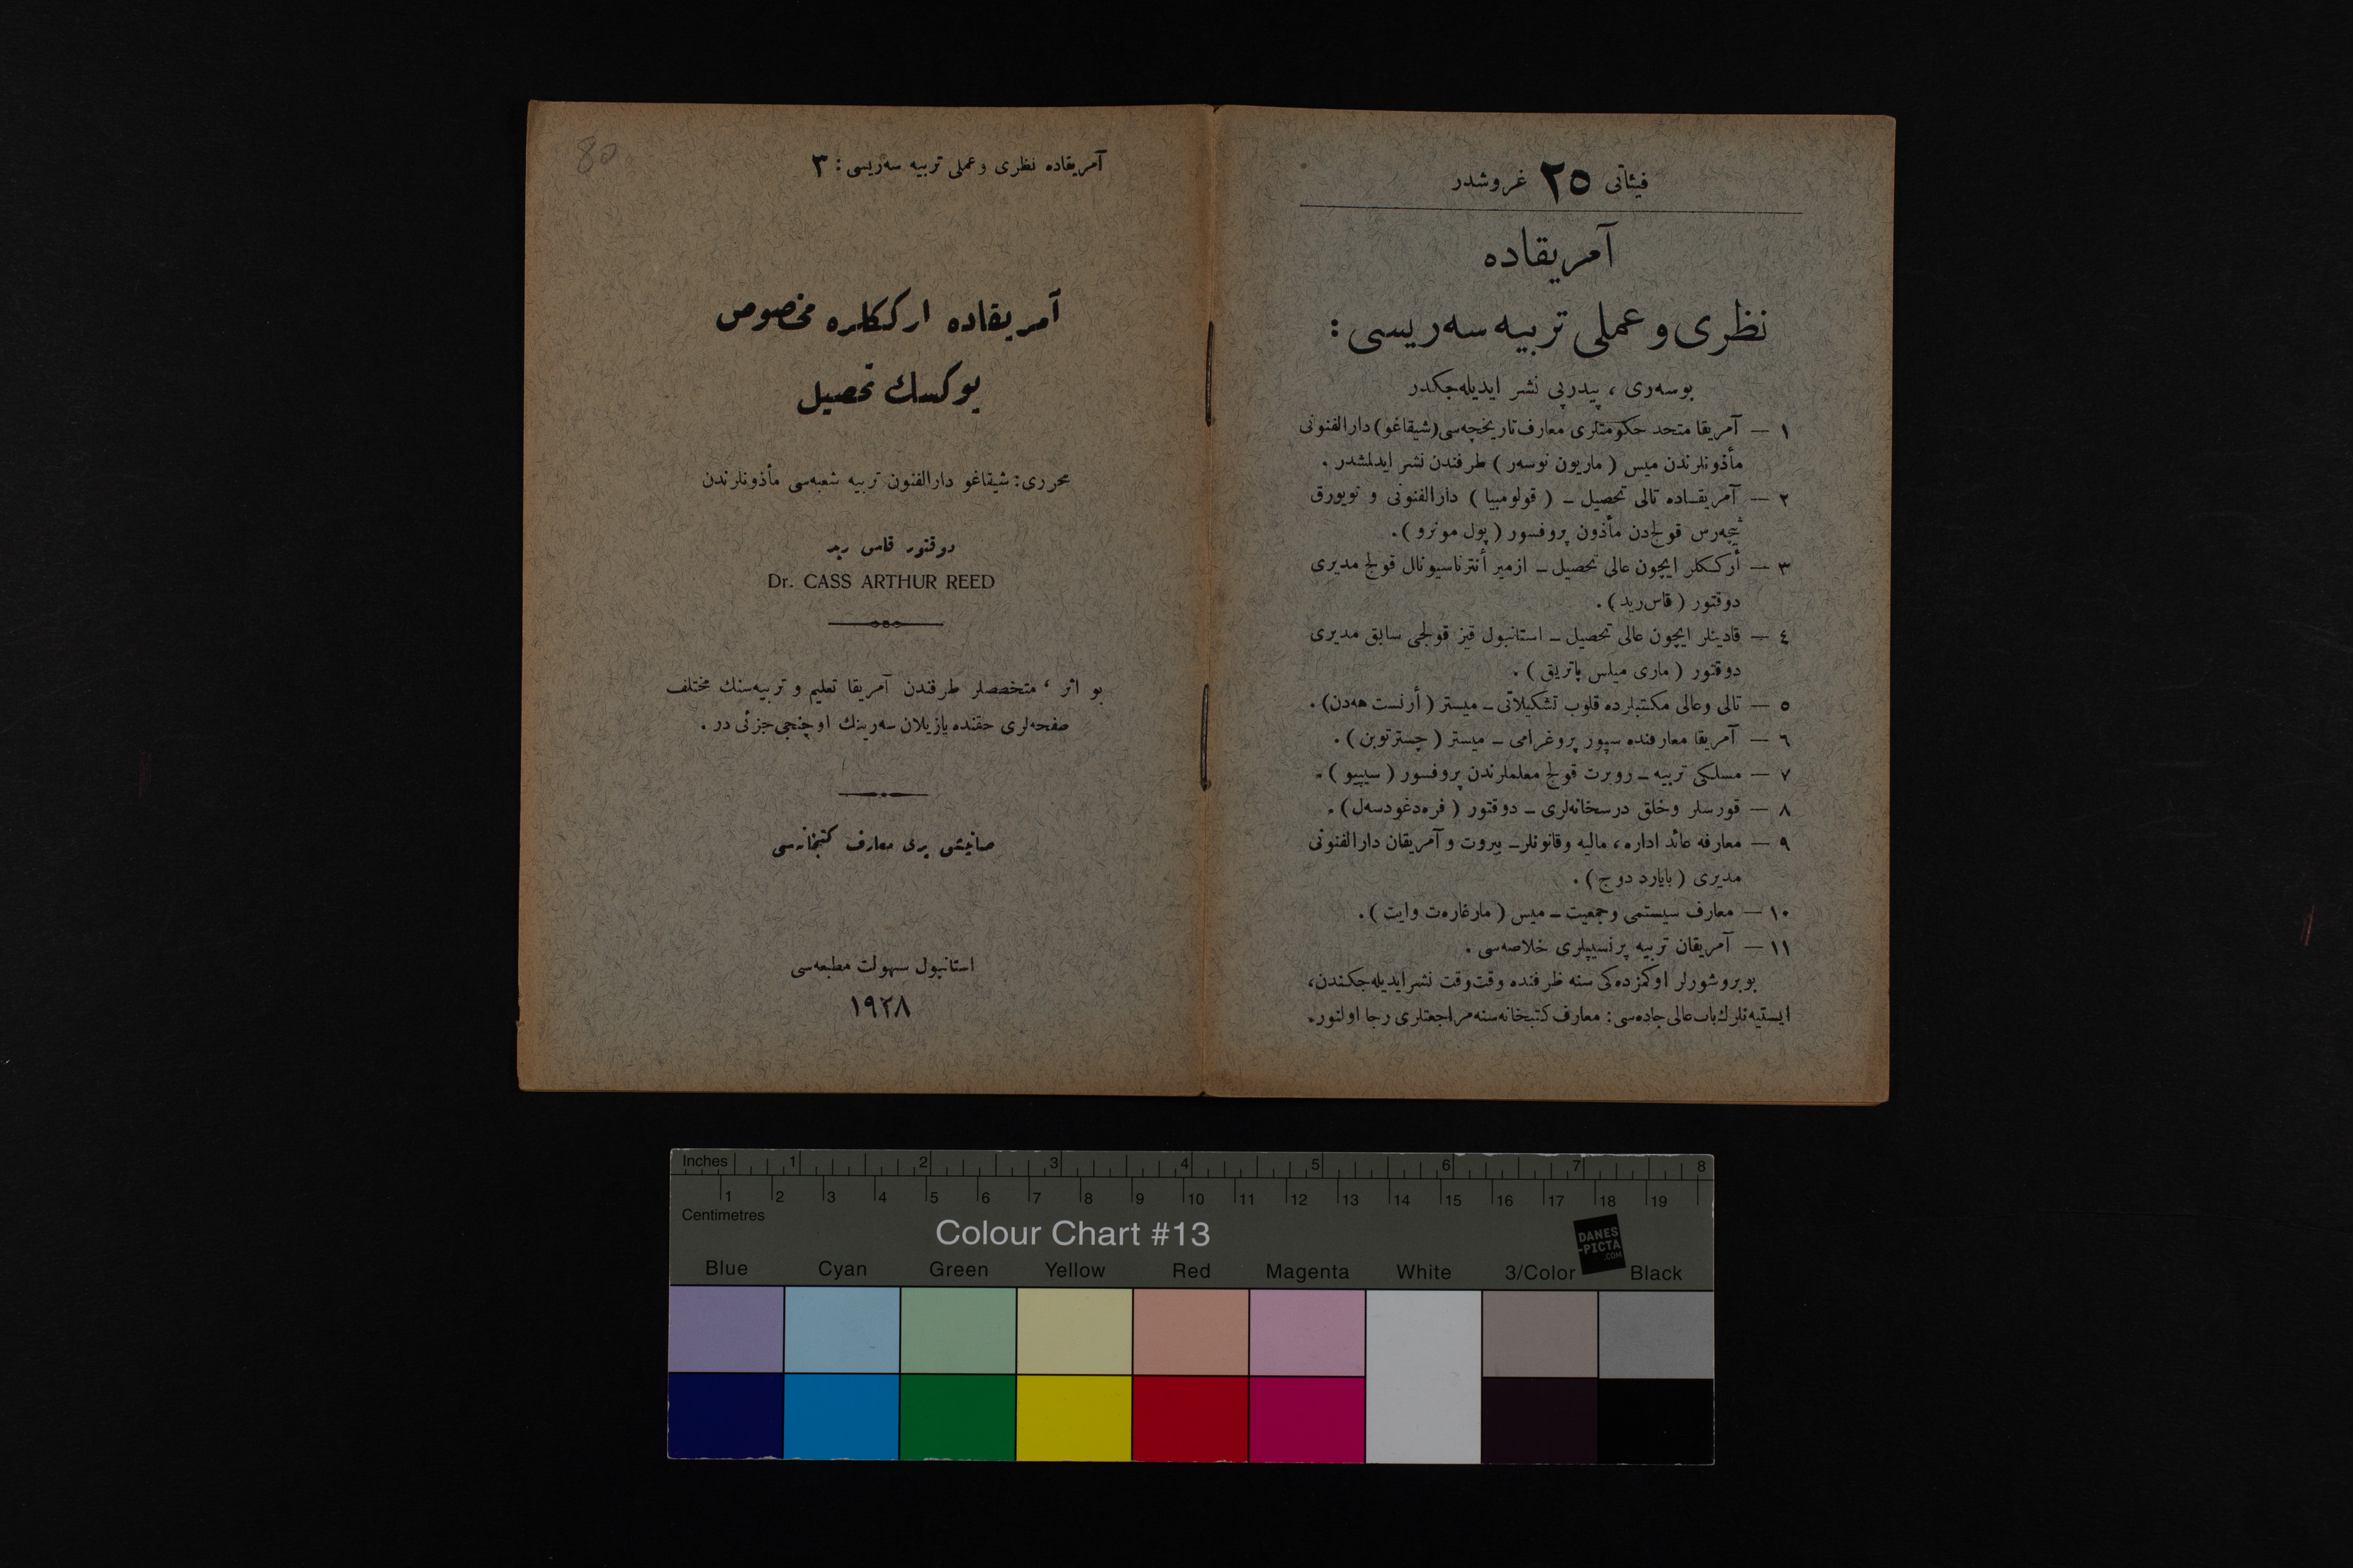 80
آمریقاده نظری وعملی تربیه سه‌ریسی: ٣
آمریقاده ارككلره مخصوص
یوكسك تحصیل
محرری: شیقاغو دارالفنون تربیه شعبه‌سی مأذونلرندن
دوقتور قاس رید
Dr. CASS ARTHUR REED
بو اثر ، متخصصلر طرفندن آمریقا تعلیم و تربیه‌سنك مختلف
صفحه‌لری حقنده یازیلان سه‌رینك اوچنجی جزئی در .
صاتیش یری معارف كتبخانه‌سی
استانبول سهولت مطبعه‌سی
١٩٢٨
فیئاتی ٢٥ غروشدر
آمریقاده
نظری وعملی تربیه سه‌ریسی :
بوسه‌ری ، پیدرپی نشر ایدیله‌جكدر
١ — آمریقا متحد حكومتلری معارف تاریخچه‌سی (شیقاغو) دارالفنونی
مأذونلرندن میس ( ماریون نوسه‌ر ) طرفندن نشر ایدلمشدر .
٢ — آمریقاده تالی تحصیل ـ ( قولومبیا ) دارالفنونی و نویورق
تیچه‌رس قولجدن مأذون پروفسور ( پول مونرو ) .
٣ — أرككلر ایچون عالی تحصیل ـ ازمیر أنترناسیونال قولج مدیری
دوقتور ( قاس رید ) .
٤ — قادینلر ایچون عالی تحصیل ـ استانبول قیز قولجی سابق مدیری
دوقتور ( ماری میلس پاتریق ) .
٥ — تالی وعالی مكتبلرده قلوب تشكیلاتی ـ میستر ( أرنست هه‌دن) .
٦ — آمریقا معارفنده سپور پروغرامی ـ میستر ( چسترتوبن ) .
٧ — مسلكی تربیه ـ روبرت قولج معلملرندن پروفسور ( سیپیو ) .
٨ — قورسلر وخلق درسخانه‌لری ـ دوقتور ( فره‌دغودسه‌ل ) .
٩ — معارفه عائد اداره ، مالیه وقانونلر ـ بیروت و آمریقان دارالفنونی
مدیری ( بایارد دوج ) .
١٠ — معارف سیستمی وجمعیت ـ میس ( مارغاره‌ت وایت ) .
١١ — آمریقان تربیه پرنسیپلری خلاصه‌سی .
بوبروشورلر اوكمزده‌كی سنه ظرفنده وقت وقت نشر ایدیله‌جكندن،
ایستیه‌نلرك باب عالی جاده‌سی : معارف كتبخانه‌سنه مراجعتلری رجا اولنور .
Inches 1 2 3 4 5 6 7 8
1 2 3 4 5 6 7 8 9 10 11 12 13 14 15 16 17 18 19
Centimetres
Colour Chart #13
DANES
-PICTA
.COM
Blue Cyan Green Yellow Red Magenta White 3/Color Black